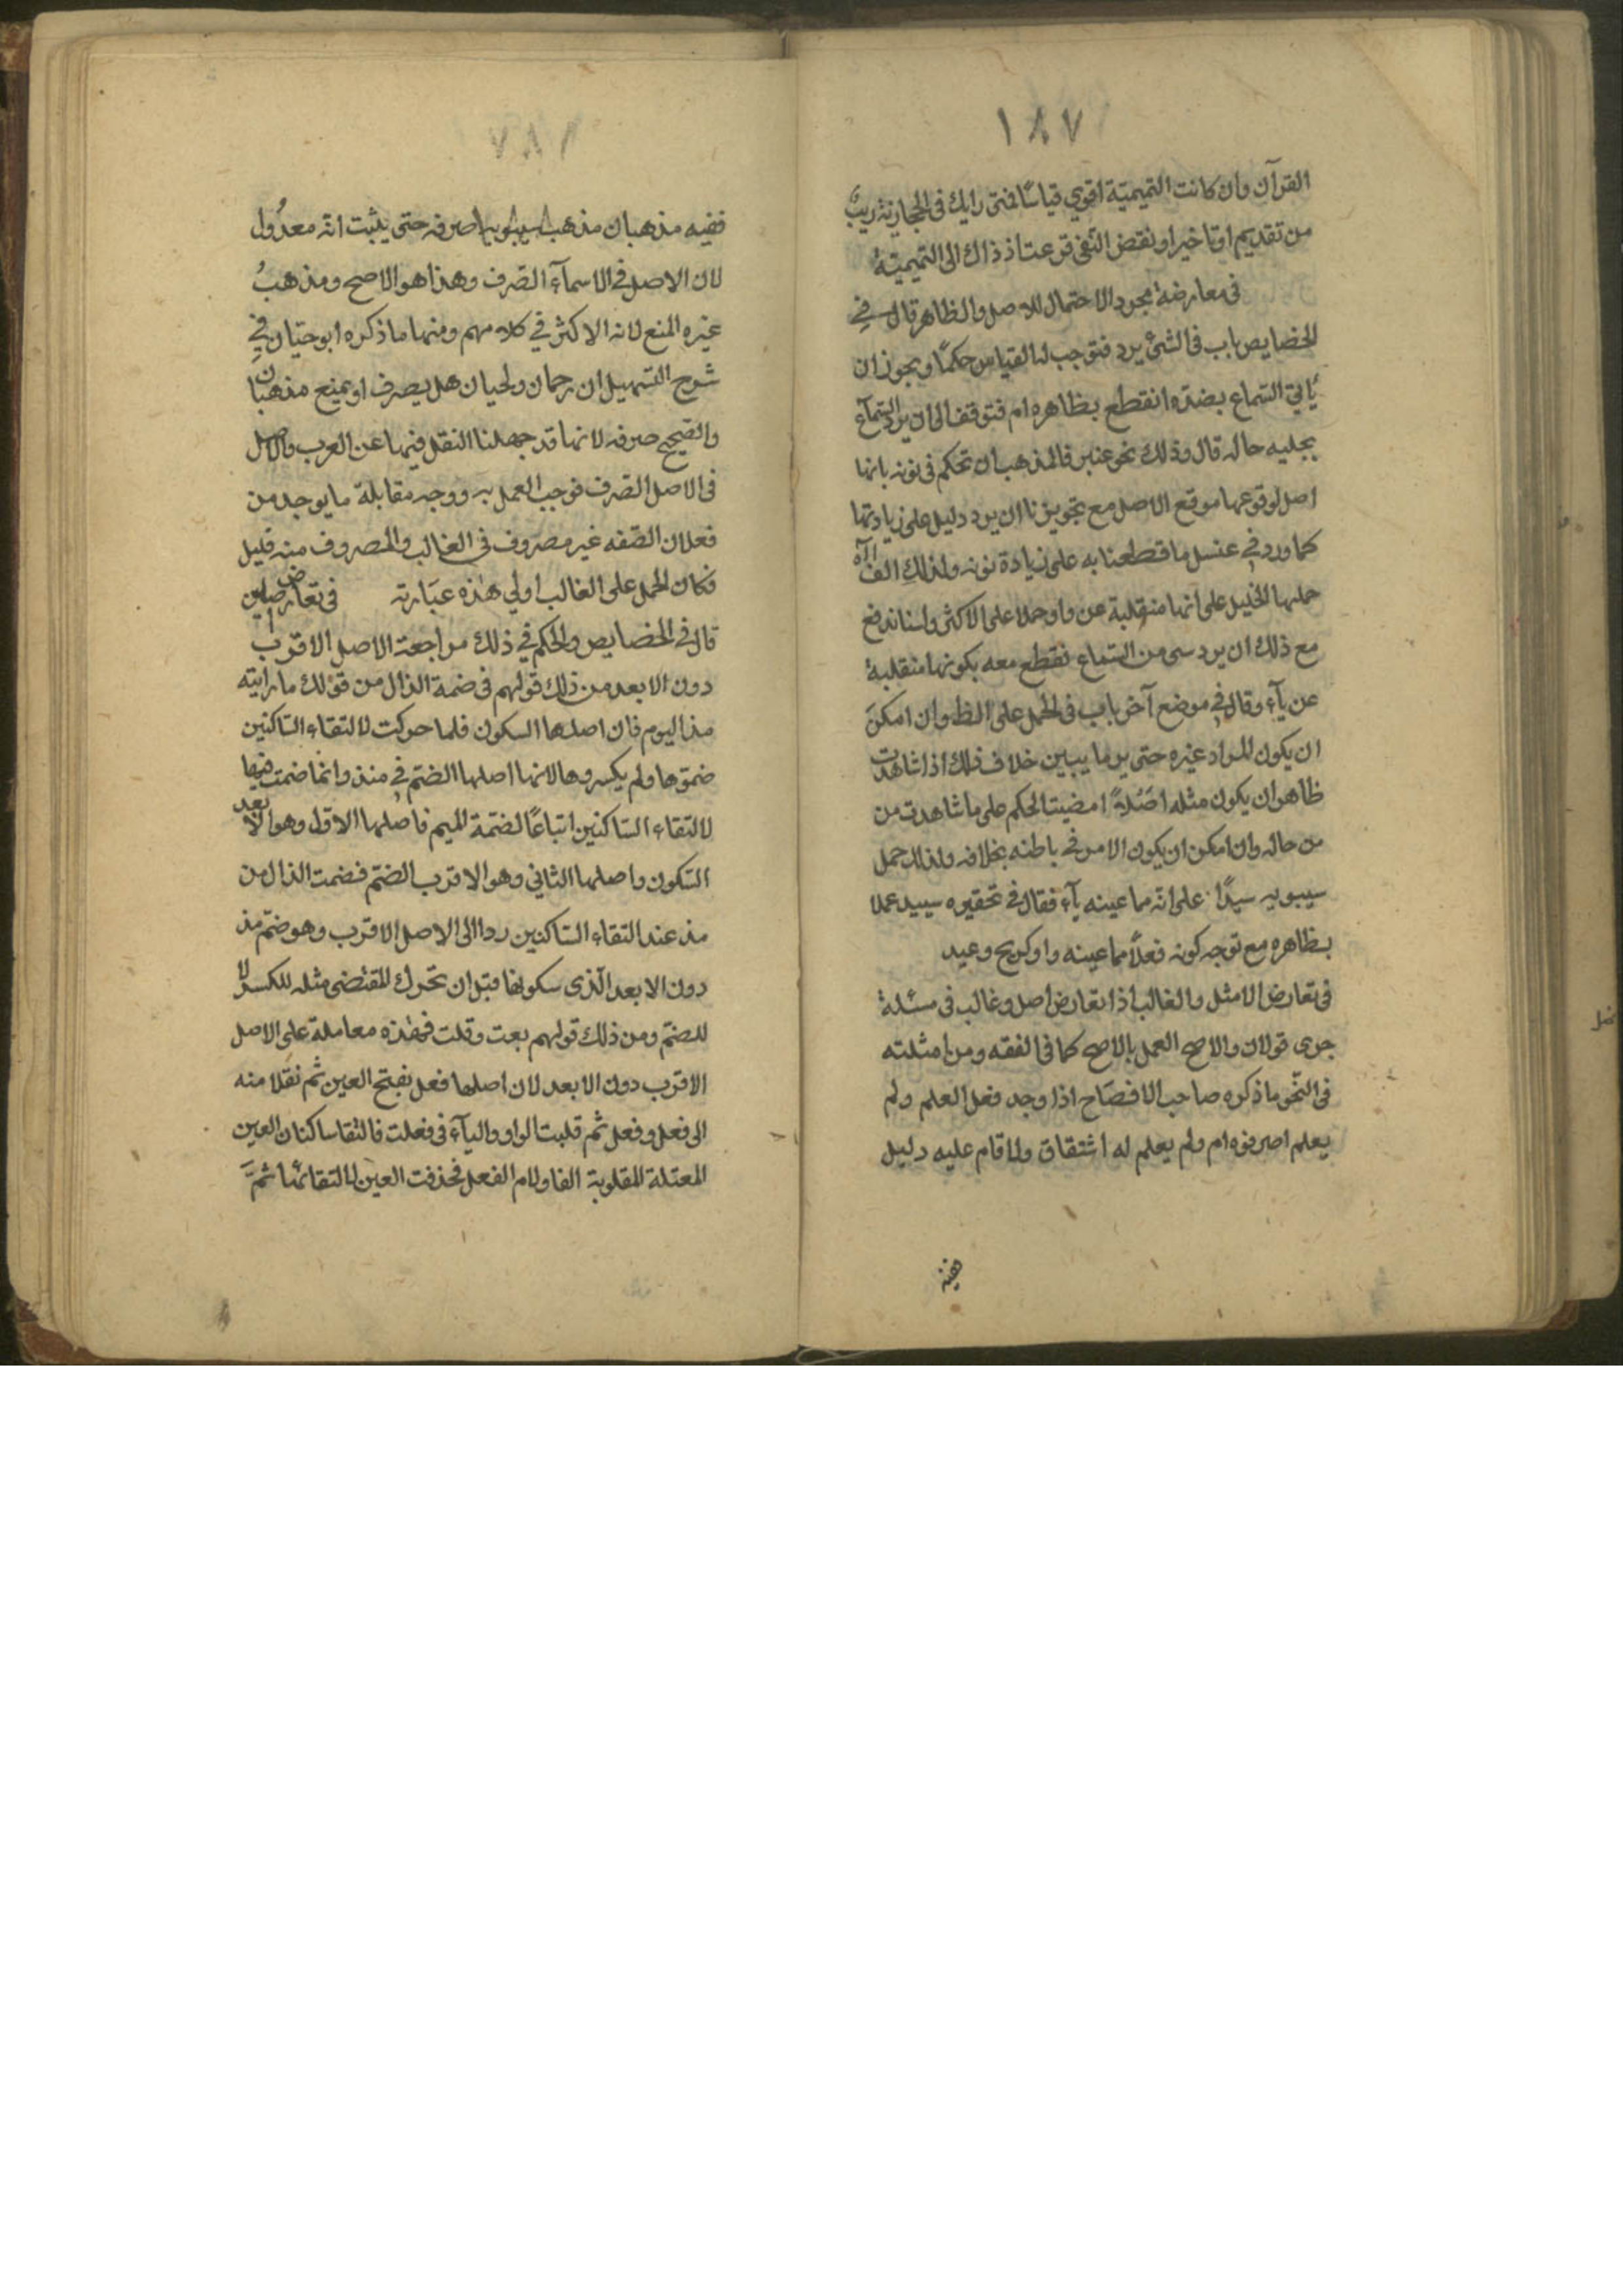 ١٨٧
القرآن وان كانت التميمية اقوي قياسا فمتى رابك في الحجازية ريب
من تقديم او تاخير او نقض النفي فزعت اذ ذاك الى التميمية
في معارضة مجرد الاحتمال للاصل والظاهر قال في
الخصايص باب في الشئ يرد فيتوجب له القياس حكمًا ويجوز ان
يأتي السماع بضده انقطع بظاهره ام فتوقف الى ان يرد السماء
بجليه حاله قال وذلك نحو عنبر فالمذهب ان تحكم في نونه بانها
اصل لوقوعها موقع الاصل مع تجويزنا ان يرد دليل على زيادتها
كما ورد في عنسل ما قطعنا به على زيادة نونه ولذلك الف الآة
حملها الخليل على انها منقلبة عن واو حملا على الاكثر ولسنا ندفع
مع ذلك ان يرد سى من السماع نقطع معه بكونها منقلبة
عن يآء وقال في موضع آخر باب في الحمل على الظ وان امكن
ان يكون المراد غيره حتى ير ما يبين خلاف ذلك اذا شاهدت
ظاهر ان يكون مثله اصلاً امضيت الحكم على ما شاهدت من
من حاله وان امكن ان يكون الامر في باطنه بخلافه ولذلك حمل
سيبويه سيدًا على انه مما عينه يآء فقال في تحقيره سييد عملا
بظاهره مع توجه كونه فعلًا مما عينه واو كريح وعيد
في تعارض الامثل والغالب اذا تعارض اصل وغالب في مسئلة
جرى قولان والاصح العمل بالاصح كما في الفقه ومن امثلته
في النحو ما ذكره صاحب الافصاح اذا وجد فعل العلم ولم
يعلم اصرفوه ام ولم يعلم له اشتقاق ولا قام عليه دليل
ففيه
ففيه مذهبان مذهب سيبويه صرفه حتى يثبت انه معدول
لان الاصل في الاسمآء الصرف وهذا هو الاصح ومذهب
غيره المنع لانه الاكثر في كلامهم ومنها ما ذكره ابو حيان في
شرح التسهيل ان رحمان ولحيان هل يصرف او يمنع مذهبان
والصحيح صرفه لانها قد جهلنا النقل فيها عن العرب والاصل
في الاصل الصرف فوجب العمل به ووجه مقابلة ما يوجد من
فعلان الصفه غير مصروف في الغالب والمصروف منه قليل
فكان الحمل على الغالب اولي هذه عبارته في تعارض اصلين
قال في الخصايص والحكم في ذلك مراجعة الاصل الاقرب
دون الابعد من ذلك قولهم في ضمة الذال من قولك ما رايته
مذ اليوم فان اصلها السكون فلما حركت لالتقاء الساكنين
ضموها ولم يكسروها لانها اصلها الضم في منذ وانما ضمت فيها
لالتقاء الساكنين اتباعًا لضمة الميم فاصلها الاول وهو الابعد
السكون واصلها الثاني وهو الاقرب الضم فضمت الذال من
مذ عند التقاء الساكنين ردا الى الاصل الاقرب وهو ضم مذ
دون الابعد الذى سكونها قبل ان تحرك المقتضى مثله للكسر لا
للضم ومن ذلك قولهم بعت وقلت فهذه معاملة على الاصل
الاقرب دون الابعد لان اصلها فعل بفتح العين ثم نقلا منه
الى فعل وفعل ثم قلبت الواو واليآء في فعلت فالتقا ساكنان العين
المعتلة المقلوبة الفا ولام الفعل فحذفت العين لالتقائهما ثم